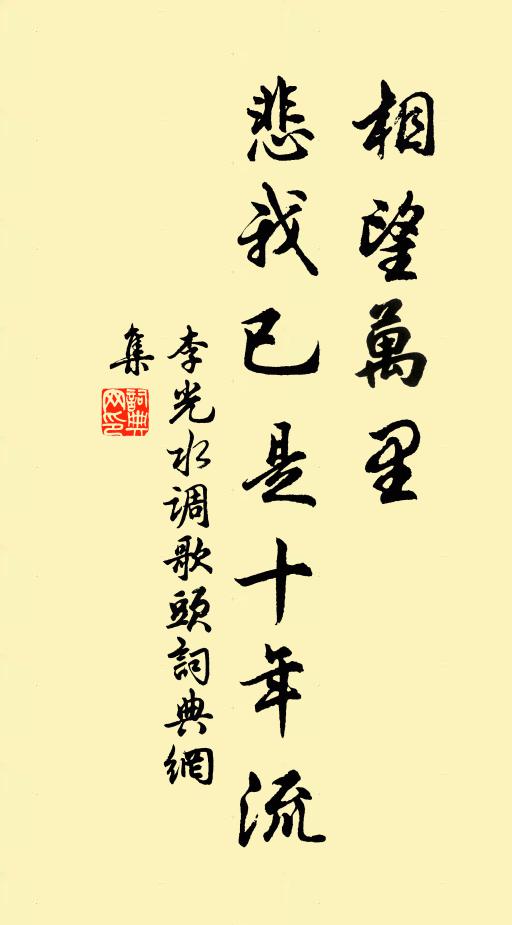 相望萬里
悲我已是十年流
李光水调歌頭詞典網
集
詞典
网印